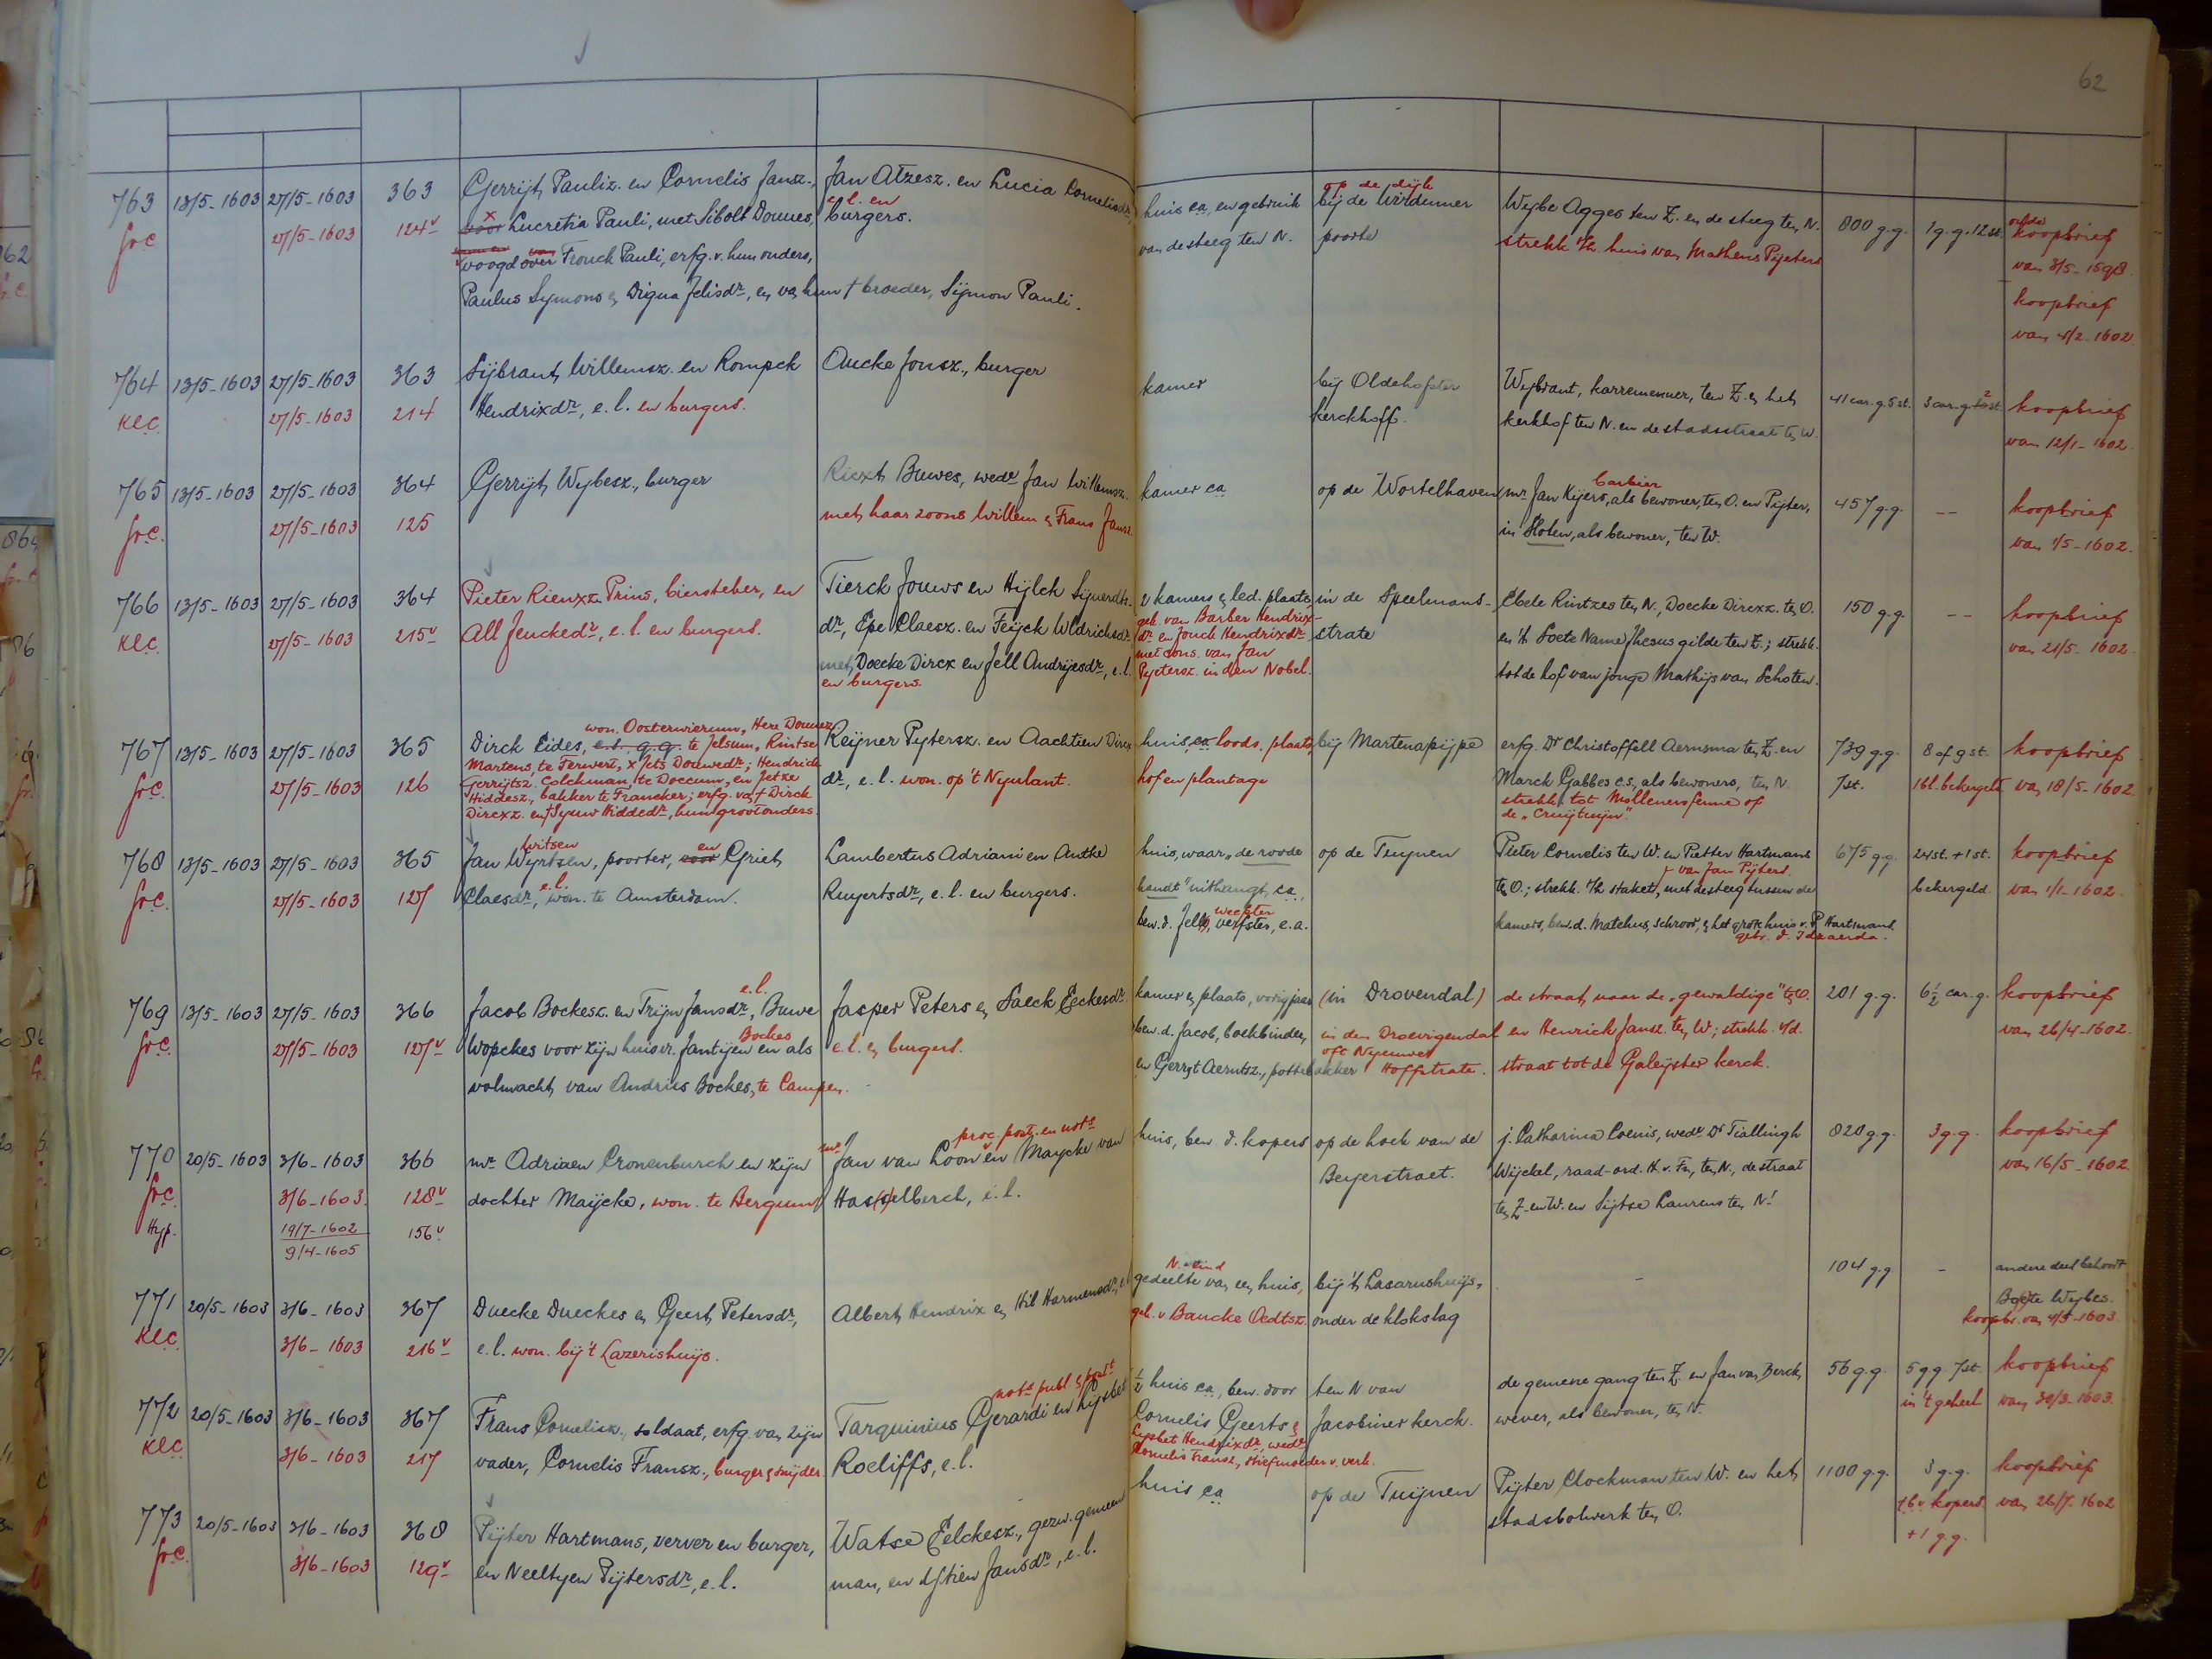 62
763 13/5-1603 27/5-1603 363 Gerrijt Pauliz. en Cornelis Jansz., Jan Atzesz. en Lucia Cornelisdr. huis ca, en gebruik bij de Wirdumer Wijbe Agges ten Z. en de steeg ten N. 800 g.g. 1 g.g. 12 st.
op de dijk
e.l. en
koopbrief
frc 27/5-1603 124v voor Lucretia Pauli, met Sibolt Douues, burgers. van de steeg ten N. poorte strekk. t/h. huis van Mathens Pijeters van 3/5-1598
voogd over Frouck Pauli, erfg. v. hun ouders,
koopbrief
Paulus Symons en Digna Jelisdr., en van hun † broeder, Sijmon Pauli.
van 4/2-1602
764 13/5-1603 27/5-1603 363 Sijbrant Willemsz. en Rompck Aucke Jonsz., burger kamer bij Oldehofster Wijbrant, karremenner, ten Z. en het 41 car. g. 5 st. koopbrief
KLC. 27/5-1603 214 Hendrixdr., e.l. en burgers. kerckhoff. kerkhof ten N. en de stadsstraat ten W. van 12/1-1602
765 13/5-1603 27/5-1603 364 Gerrijt Wijbesz., burger Ricxt Buwes, wede. Jan Willemsz. kamer ca op de Wortelhaven mr. Jan Kijers, als bewoner, ten O. en Pijter, 457 g.g. -- koopbrief
barbier
frc. 27/5-1603 125 met haar zoons Willem en Frans Jansz. in Sloten, als bewoner, ten W. van 1/5-1602.
766 13/5-1603 27/5-1603 364 Pieter Rienxz. Prins, biersteker, en Tierck Jouws en Hijlck Sijuerdts- 2 kamers en led. plaats in de Speelmans- Ebele Rintzes ten N., Doecke Dircxz. ten O. 150 g.g. -- koopbrief
KLC. 27/5-1603 215v All Jenckedr., e.l. en burgers. dr., Epe Claesz. en Feijck Wldrichsdr. geb. van Barber Hendrix- strate en 't Soete Name Jhesus gilde ten Z.; strekk. van 21/5-1602
dr. en Jouck Hendrixdr.
met Doecke Dircx en Jell Andrijesdr., e.l. met cons. van Jan
en burgers. Pijetersz. in den Nobel. tot de hof van jonge Mathijs van Schoten.
won. Oosterwierum, Here Douwez.
767 13/5-1603 27/5-1603 365 Dirck Eides, te Jelsum, Rintse Reijner Pijtersz. en Aachtien Dircx huis, ca loods, plaats, bij Martenapijpe erfg. Dr Christoffell Aernsma ten Z. en 739 g.g. 8 of 9 st. koopbrief
Martens, te Ferwert, x Jets Douwedr.; Hendrick
frc. 27/5-1603 126 Gerrijtsz. Colckman, te Doccum, en Jetze dr., e.l. won. op 't Nijulant. hof en plantage Marck Gabbes c.s., als bewoners, ten N 7 st. van 18/5-1602
Hiddesz., bakker te Francker; erfg. van † Dirck strekk. tot Mollenersfenne of
Dircxz. en † Syuw Hiddedr., hun grootouders. de "Cruijtuijn".
768 13/5-1603 27/5-1603 365 Jan Wijrtsen, poorter, voor Griet Lambertus Adriani en Anthe huis, waar "de roode op de Tuijnen Pieter Cornelis ten W. en Pietter Hartmans 675 g.g. 24 st. + 1 st. koopbrief
Witsen en
van Jan Pijters.
frc. 27/5-1603 127 Claesdr., won. te Amsterdam. Ruijertsdr., e.l. en burgers. handt" uithangt, ca, ten O.; strekk. t/h staket, met de steeg tussen de bekergeld van 1/1-1602.
e.l.
wechter
bew. d. Jell, verfster, e.a. kamers, bew. d. Matehus, schroor, en het grote huis v. P Hartmans
gebr. d. Idzaerda.
769 13/5-1603 27/5-1603 366 Jacob Bockesz. en Trijn Jansdr., Buwe Jasper Peters en Saeck Eeckesdr. kamer en plaats, vorig jaar (in Drovendal) de straat naar de "gewaldige" ten O. 201 g.g. 6½ car. g. koopbrief
e.l.
frc. 27/5-1603 127v Wopckes voor zijn huisvr. Jantijen en als e.l. en burgers. bew. d. Jacob, boekbinder, in den Droevigendal en Henrick Jansz. ten W; strekk. v/d. van 26/4-1602.
Bockes
volmacht van Andries Bockes, te Campen. en Gerrijt Aerntsz., pottebakker oft Nijeuwe Hoffstrate. straat tot de Galeijster kerck.
770 20/5-1603 3/6-1603 366 mr. Adriaen Cronenburch en zijn mr. Jan van Loon en Maycke van huis, bew. d. kopers op de hoek van de j. Catharina Coenis, wede. Dr Tiallingh 820 g.g. 3 g.g. koopbrief
proc. post. en nots.
frc. 3/6-1603. 128v dochter Maijcke, won. te Bergum Hasselberch, e.l. Beijerstraet. Wijckel, raad-ord. H. v. Fr., ten N., de straat van 16/5-1602
Hyp. 19/7-1602 156v ten Z. en W. en Sijtse Laurens ten N!
9/4-1605
771 20/5-1603 3/6-1603 367 Duecke Dueckes en Geert Petersdr., Albert Hendrix en Hil Harmensdr., e.l. gedeelte van een huis, bij 't Lasarushuijs, - 104 g.g - andere deel behoort
N. eind
Wijbes.
KLC. 3/6-1603 216v e.l. won. bij 't Lazerishuijs. geb. v. Baucke Oedtsz. onder de klokslag koopbr. van 4/3-1603.
772 20/5-1603 3/6-1603 367 Frans Cornelisz., soldaat, erfg. van zijn Tarquinius Gerardi en Lijsbet ½ huis ca, bew. door ten N van de gemene gang ten Z. en Jan van Berck, 56 g.g. 5 g g 7 st. koopbrief
nots. publ. en post.
KLC 3/6-1603 217 vader, Cornelis Fransz., burger en snijder Roeliffs, e.l. Cornelis Geerts en Jacobiner kerck. wever, als bewoner, ten N. in 't geheel van 30/3-1603.
Lysbet Hendrixdr., wede.
Cornelis Fransz., stiefmoeder v. verk.
773 20/5-1603 3/6-1603 368 Pijter Hartmans, verver en burger, Watse Eelckesz., gezw. gemeens- huis ca op de Tuijnen Pijter Clockman ten W. en het 1100 g.g. 3 g.g. koopbrief
frc. 3/6-1603 129v en Neeltyen Pijtersdr., e.l. man, en Jansdr., e.l. stadsbolwerk ten O. kopers van 26/7-1602
+ 1 g g.